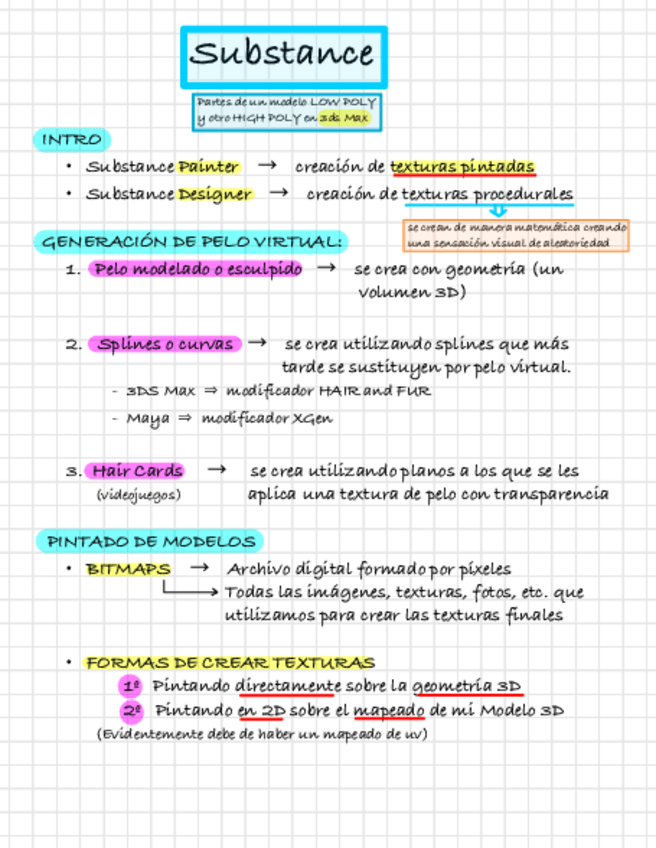 Substance
Partes de un modelo LOW POLY
y otro HIGH POLY en 3ds Max
INTRO
• Substance Painter → creación de texturas pintadas
• Substance Designer → creación de texturas procedurales
se crean de manera matemática creando
una sensación visual de aleatoriedad
GENERACIÓN DE PELO VIRTUAL:
1. Pelo modelado o esculpido → se crea con geometría (un
volumen 3D)
2. Splines o curvas → se crea utilizando splines que más
tarde se sustituyen por pelo virtual.
- 3DS Max ⇒ modificador HAIR and FUR
- Maya ⇒ modificador XGen
3. Hair Cards → se crea utilizando planos a los que se les
(videojuegos) aplica una textura de pelo con transparencia
PINTADO DE MODELOS
• BITMAPS → Archivo digital formado por píxeles
→ Todas las imágenes, texturas, fotos, etc. que
utilizamos para crear las texturas finales
• FORMAS DE CREAR TEXTURAS
1º Pintando directamente sobre la geometría 3D
2º Pintando en 2D sobre el mapeado de mi Modelo 3D
(Evidentemente debe de haber un mapeado de uv)